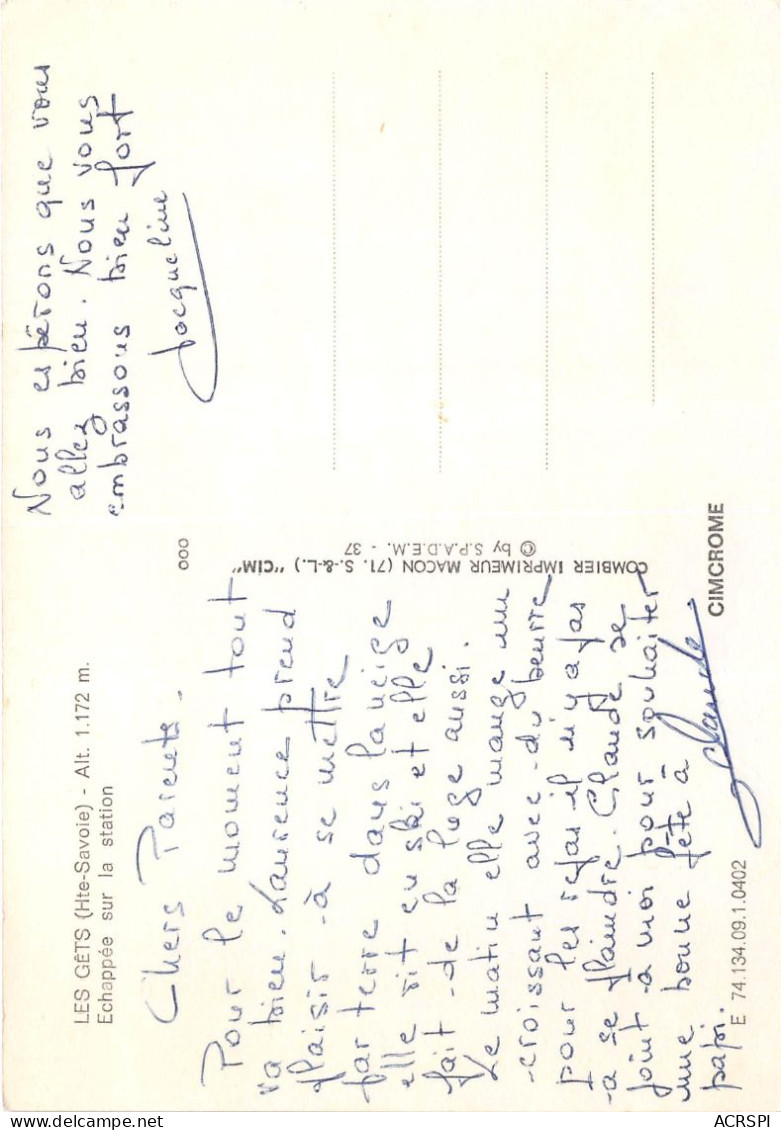 LES GÊTS (Hte-Savoie) - Alt. 1.172 m.
Echappée sur la station
Chers Parents.
Pour le moment tout
va bien. Laurence prend
plaisir à se mettre
par terre dans la neige
elle rit en ski et elle
fait de la luge aussi.
Le matin elle mange un
croissant avec du beurre
pour les repas il n'y a pas
a se plaindre. Claude se
joint à moi pour souhaiter
une bonne fête à
papi.
Claude
E 74.134.09.1.0402
CIMCROME
000
COMBIER IMPRIMEUR MACON (71. S.-&-L.) "CIM"
© by S.P.A.D.E.M. - 37
Nous espérons que vous
allez bien. Nous vous
embrassons bien fort
Jacqueline
ACRSPI